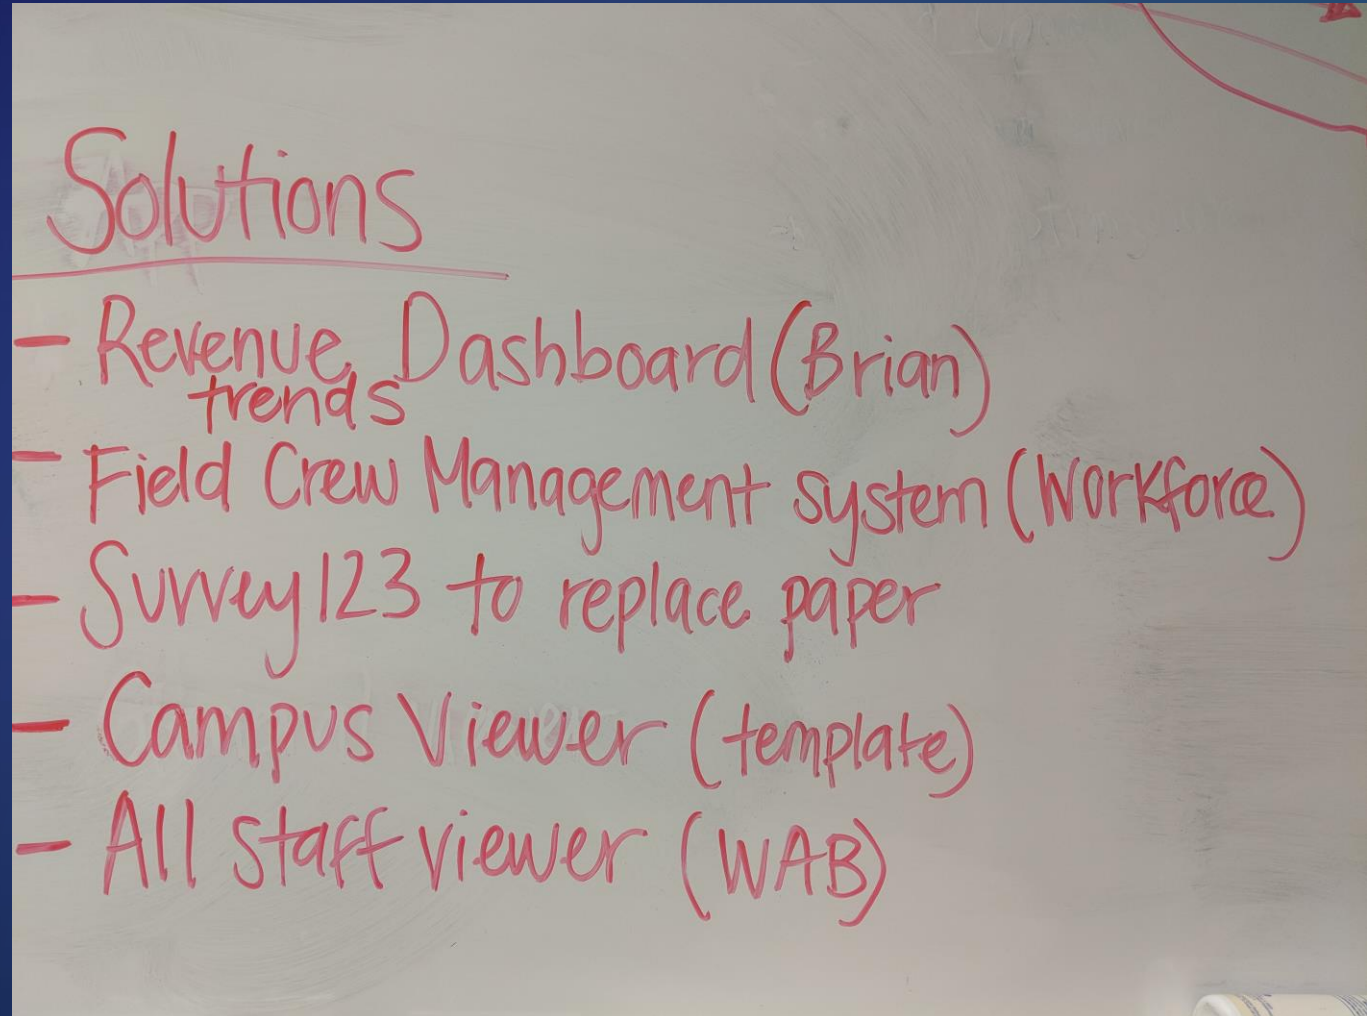 Solutions
- Revenue Dashboard (Brian)
trends
- Field Crew Management system (Workforce)
- Survey123 to replace paper
- Campus Viewer (template)
- All staff viewer (WAB)